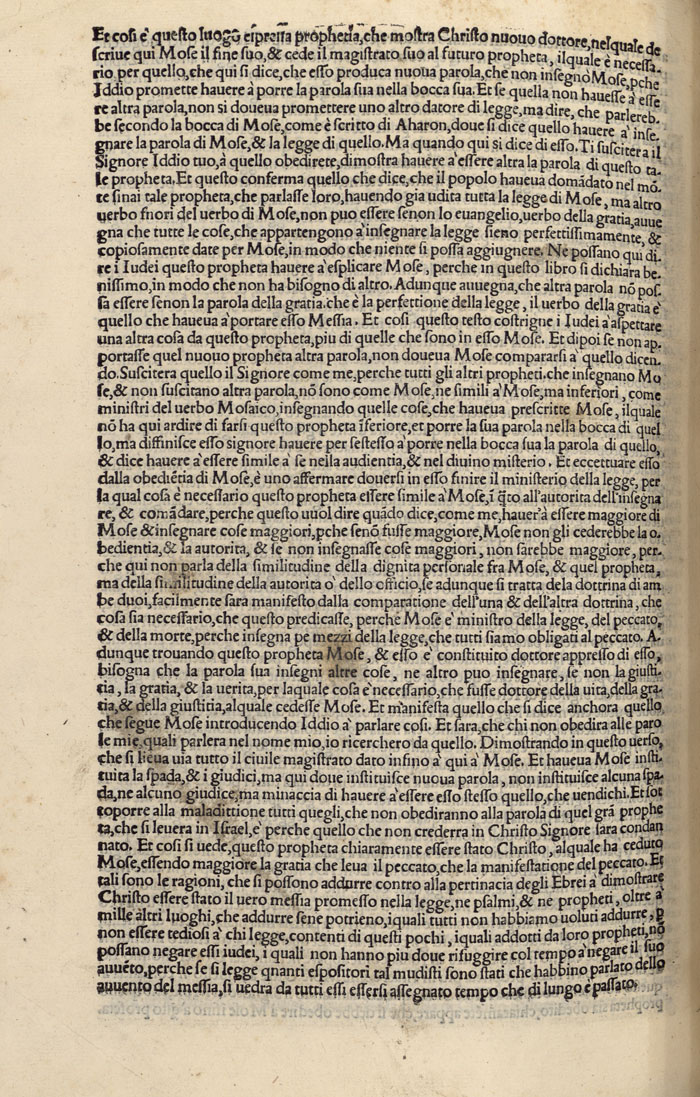 Et cosi è questo luogo espressa prophetia, che mostra Christo nuouo dottore, nelquale de
scriue qui Mose il fine suo, & cede il magistrato suo al futuro propheta, ilquale è necessa-
rio per quello, che qui si dice, che esso produca nuoua parola, che non insegnò Mose, pche
Iddio promette hauere à porre la parola sua nella bocca sua. Et se quella non hauesse a'esse
re altra parola, non si doueua promettere uno altro datore di legge, ma dire, che parlereb-
be secondo la bocca di Mose, come è scritto di Aharon, doue si dice quello hauere a' inse-
gnare la parola di Mose, & la legge di quello. Ma quando qui si dice di esso. Ti susciterà il
Signore Iddio tuo, à quello obedirete, dimostra hauere a'essere altra la parola di questo ta-
le propheta. Et questo conferma quello che dice, che il popolo haueua domãdato nel mõ-
te sinai tale propheta, che parlasse loro, hauendo gia udita tutta la legge di Mose, ma altro
uerbo fnori del uerbo di Mose, non puo essere senon lo euangelio, uerbo della gratia, auue
gna che tutte le cose, che appartengono a'insegnare la legge sieno perfettissimamente, &
copiosamente date per Mose, in modo che niente si possa aggiugnere. Ne possano qui di-
re i Iudei questo propheta hauere a'esplicare Mose, perche in questo libro si dichiara be-
nissimo, in modo che non ha bisogno di altro. Adunque auuegna, che altra parola nõ pos-
sa essere senon la parola della gratia. che è la perfettione della legge, il uerbo della gratia è
quello che haueua a'portare esso Messia. Et cosi questo testo costrigne i Iudei a'aspettare
una altra cosa da questo propheta, piu di quelle che sono in esso Mose. Et dipoi se non ap-
portasse quel nuouo propheta altra parola, non doueua Mose compararsi a' quello dicen-
do. Susciterà quello il Signore come me, perche tutti gli altri propheti. che insegnano Mo
se, & non suscitano altra parola, nõ sono come Mose, ne simili a'Mose, ma inferiori, come
ministri del uerbo Mosaico, insegnando quelle cose, che haueua prescritte Mose, ilquale
nõ ha qui ardire di farsi questo propheta ĩferiore, et porre la sua parola nella bocca di quel
lo, ma diffinisce esso signore hauere per sestesso a'porre nella bocca sua la parola di quello,
& dice hauere a'essere simile a' se nella audientia, & nel diuino misterio. Et eccettuare esso
dalla obediẽtia di Mose, è uno affermare douersi in esso finire il ministerio della legge, per
la qual cosa è necessario questo propheta essere simile a'Mose, ĩ q̃to all'autorita dell'insegna
re, & comãdare, perche questo uuol dire quãdo dice, come me, hauer'à essere maggiore di
Mose & insegnare cose maggiori, pche senõ fusse maggiore, Mose non gli cederebbe la o-
bedientia, & la autorita, & se non insegnasse cose maggiori, non sarebbe maggiore, per-
che qui non parla della similitudine della dignita personale fra Mose, & quel propheta,
ma della similitudine della autorita o' dello officio, se adunque si tratta dela dottrina di am
be duoi, facilmente sara manifesto dalla comparatione dell'una & dell'altra dottrina, che
cosa sia necessario, che questo predicasse, perche Mose e' ministro della legge, del peccato,
& della morte, perche insegna pe mezzi della legge, che tutti siamo obligati al peccato. A-
dunque trouando questo propheta Mose, & esso e' constituito dottore appresso di esso,
bisogna che la parola sua insegni altre cose, ne altro puo insegnare, se non la giusti-
tia, la gratia, & la uerita, per laquale cosa è necessario, che fusse dottore della uita, della gra-
tia, & della giustitia, alquale cedesse Mose. Et manifesta quello che si dice anchora quello
che segue Mose introducendo Iddio a' parlare cosi. Et sara, che chi non obedira alle paro
le mie, quali parlera nel nome mio, io ricerchero da quello. Dimostrando in questo uerso,
che si lieua uia tutto il ciuile magistrato dato infino a' qui a' Mose. Et haueua Mose insti-
tuita la spada, & i giudici, ma qui doue instituisce nuoua parola, non instituisce alcuna spa-
da, ne alcuno giudice, ma minaccia di hauere a'essere esso stesso quello, che uendichi. Et sot
toporre alla maladittione tutti quegli, che non obediranno alla parola di quel grã prophe
ta, che si leuera in Israel, e' perche quello che non crederra in Christo Signore sara condan
nato. Et cosi si uede, questo propheta chiaramente essere stato Christo, alquale ha ceduto
Mose, essendo maggiore la gratia che leua il peccato, che la manifestatione del peccato. Et
tali sono le ragioni, che si possono addurre contro alla pertinacia degli Ebrei a' dimostrare
Christo essere stato il uero messia promesso nella legge, ne psalmi, & ne propheti, oltre à
mille altri luoghi, che addurre sene potrieno, iquali tutti non habbiamo uoluti addurre, p
non essere tediosi a' chi legge, contenti di questi pochi, iquali addotti da loro propheti, nõ
possano negare essi iudei, i quali non hanno piu doue rifuggire col tempo a'negare il suo
auuẽto, perche se si legge qnanti espositori tal mudisti sono stati che habbino parlato dello
auuento del messia, si uedrà da tutti essi essersi assegnato tempo che di lungo è passato,